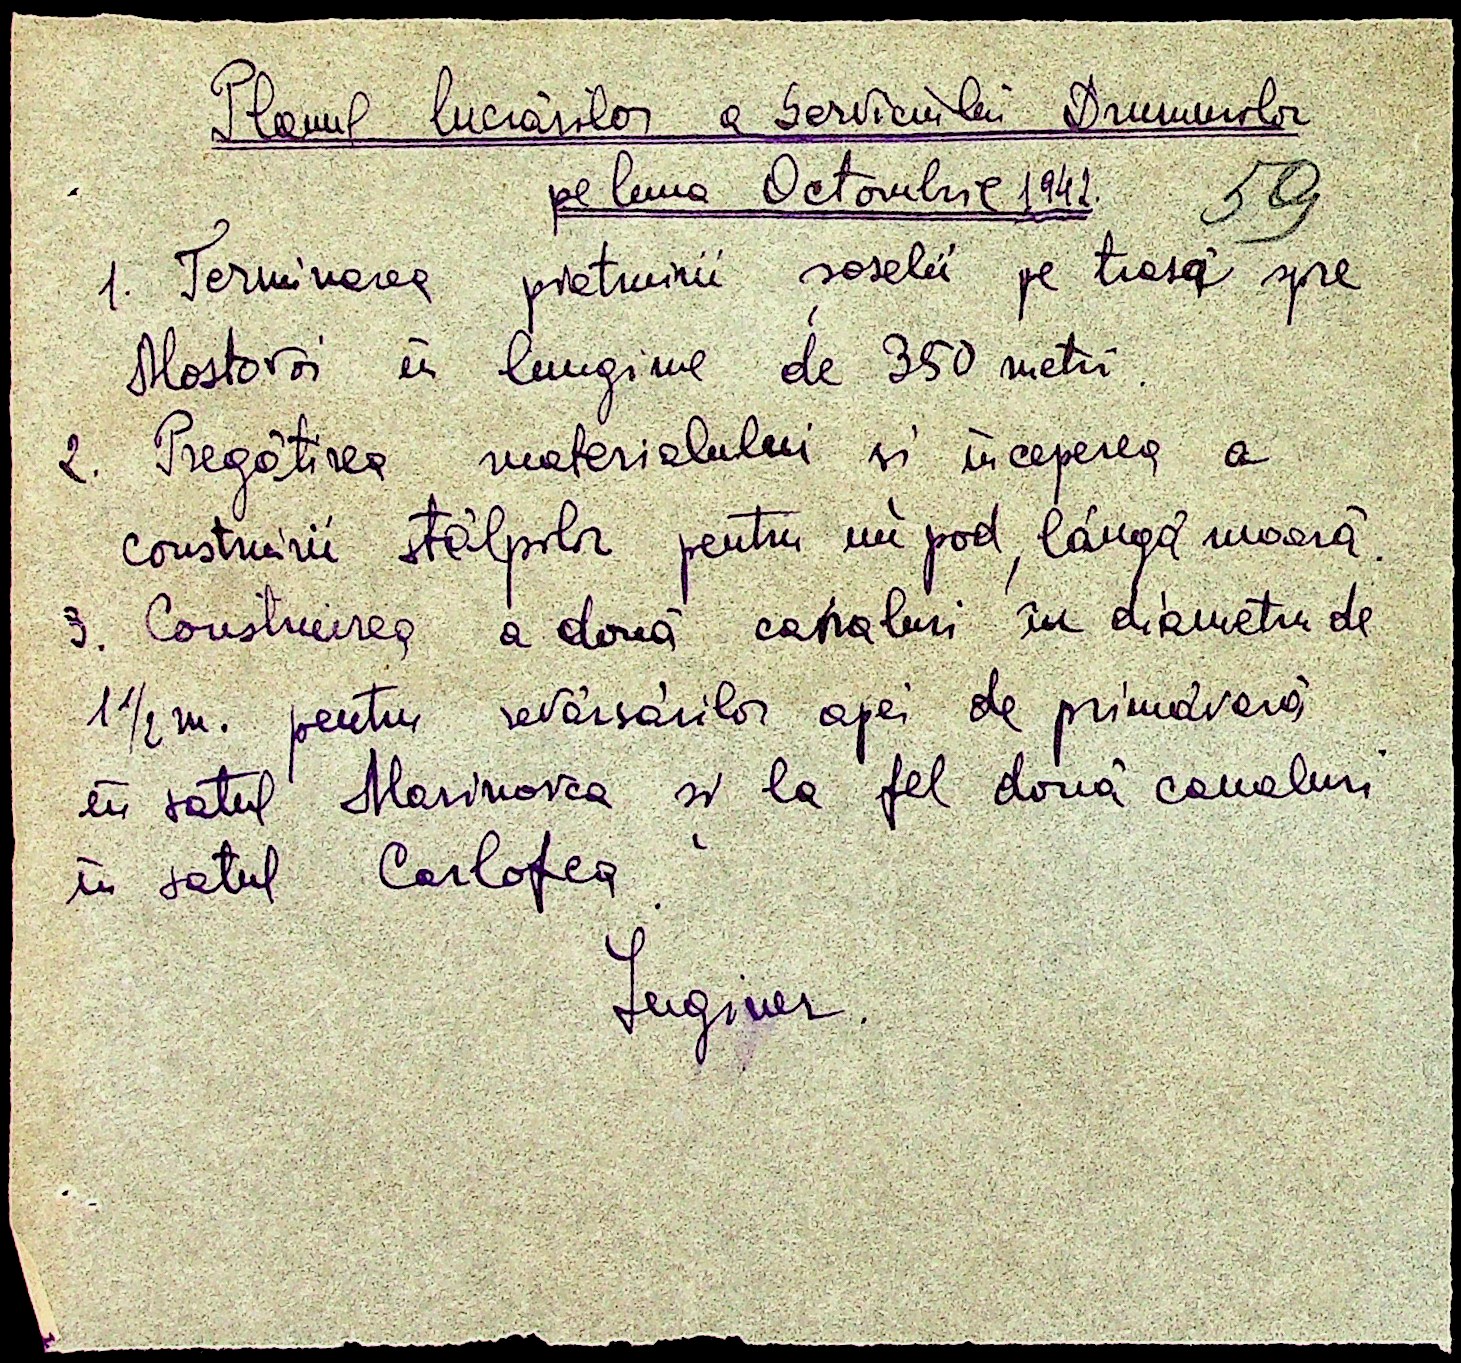 Planul lucrărilor a Serviciului Drumurilor
pe luna Octombrie 1942.
59
1. Terminarea pietruirii șoselei pe trasă spre
Mostovoi în lungime de 350 metri.
2. Pregătirea materialului și începerea a
construirii stâlpilor pentru un pod, lângă moară.
3. Construirea a două canaluri în diametru de
1 1/2 m. pentru revărsărilor apei de primăvară
în satul Marinovca și la fel două canaluri
în satul Carlofca.
Inginer.